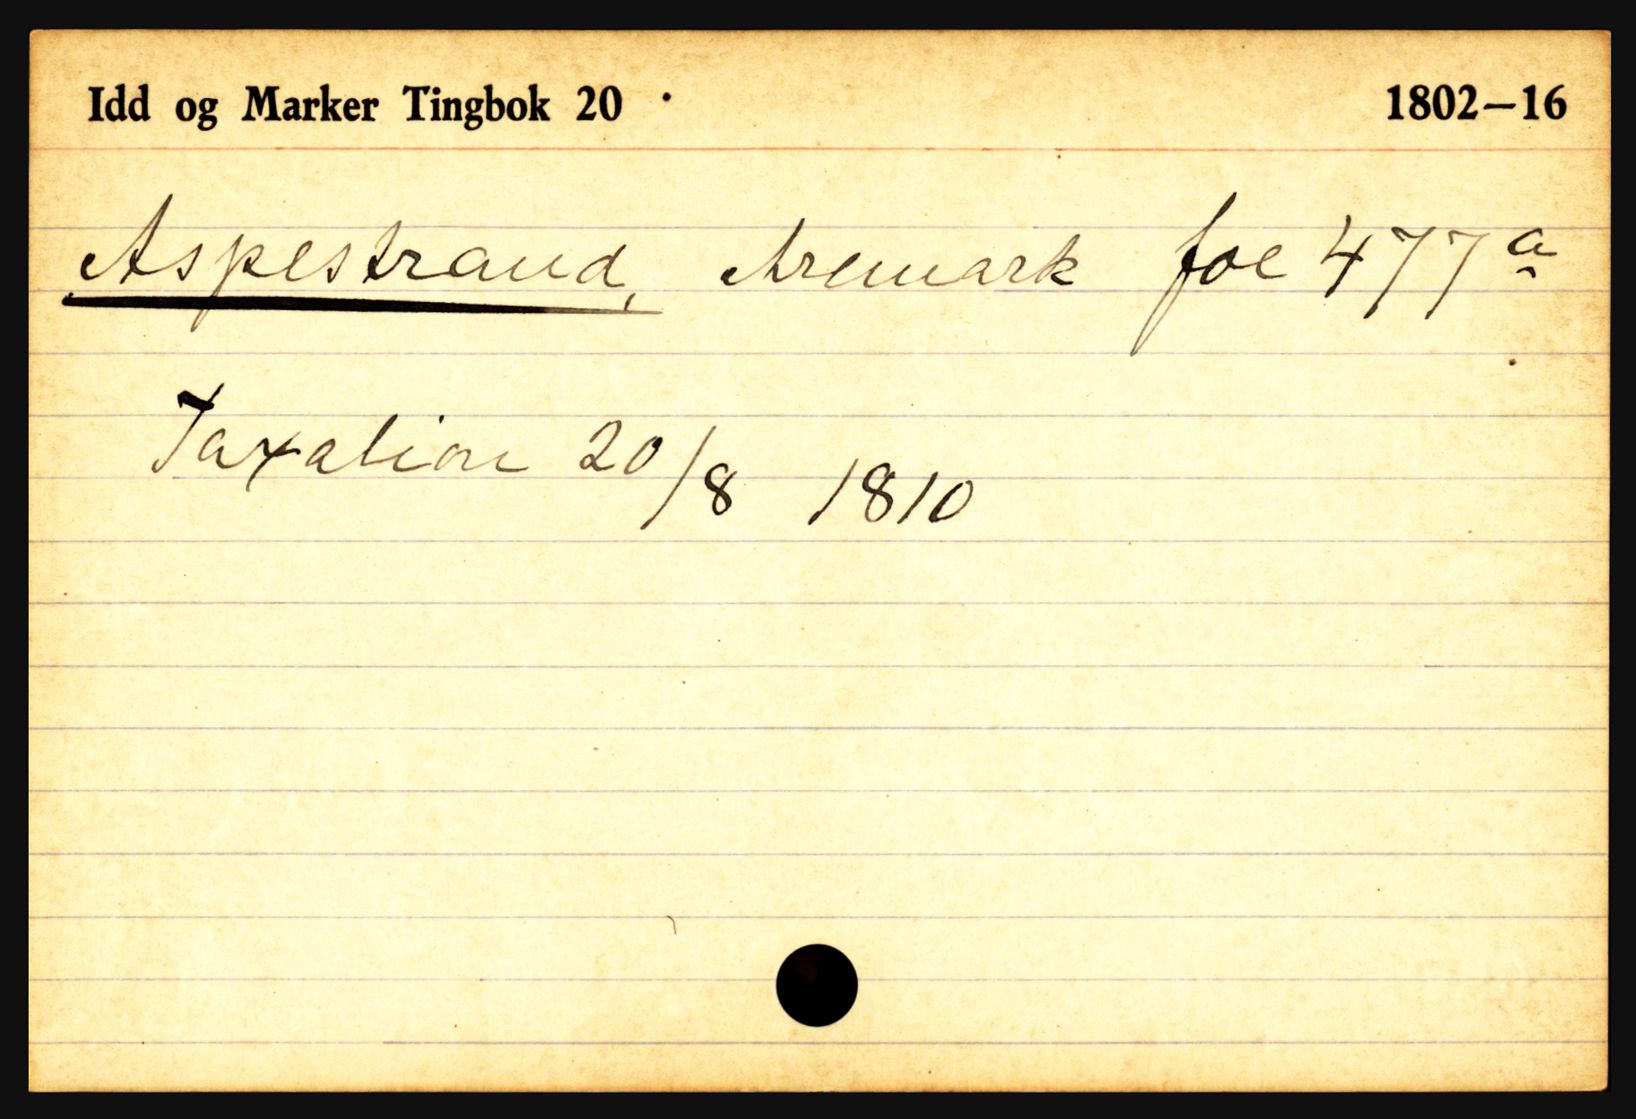 Idd og Marker Tingbok 20 1802–16
Aspestrand, Aremark foe 477a
Taxation 20/8 1810